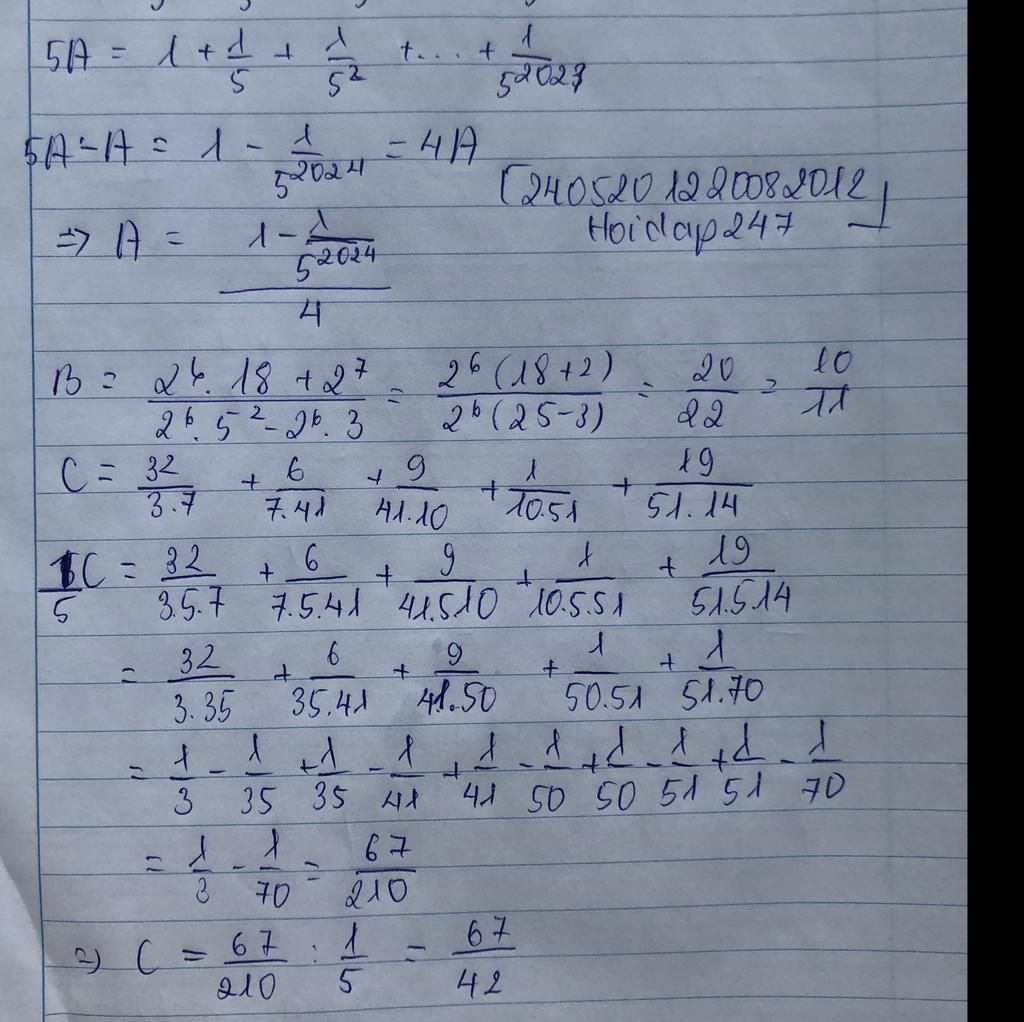 5A = 1 + 1/5 + 1/5^2 + ... + 1/5^2023
5A - A = 1 - 1/5^2024 = 4A
[240520122008 2012
Hoidap247 ]
=> A = (1 - 1/5^2024)/4
B = (2^6 . 18 + 2^7)/(2^6 . 5^2 - 2^6 . 3) = 2^6 (18+2)/2^6 (25-3) = 20/22 = 10/11
C = 32/3.7 + 6/7.41 + 9/41.10 + 1/10.51 + 19/51.14
1/5 C = 32/3.5.7 + 6/7.5.41 + 9/41.5.10 + 1/10.5.51 + 19/51.5.14
= 32/3.35 + 6/35.41 + 9/41.50 + 1/50.51 + 1/51.70
= 1/3 - 1/35 + 1/35 - 1/41 + 1/41 - 1/50 + 1/50 - 1/51 + 1/51 - 1/70
= 1/3 - 1/70 = 67/210
=> C = 67/210 : 1/5 = 67/42